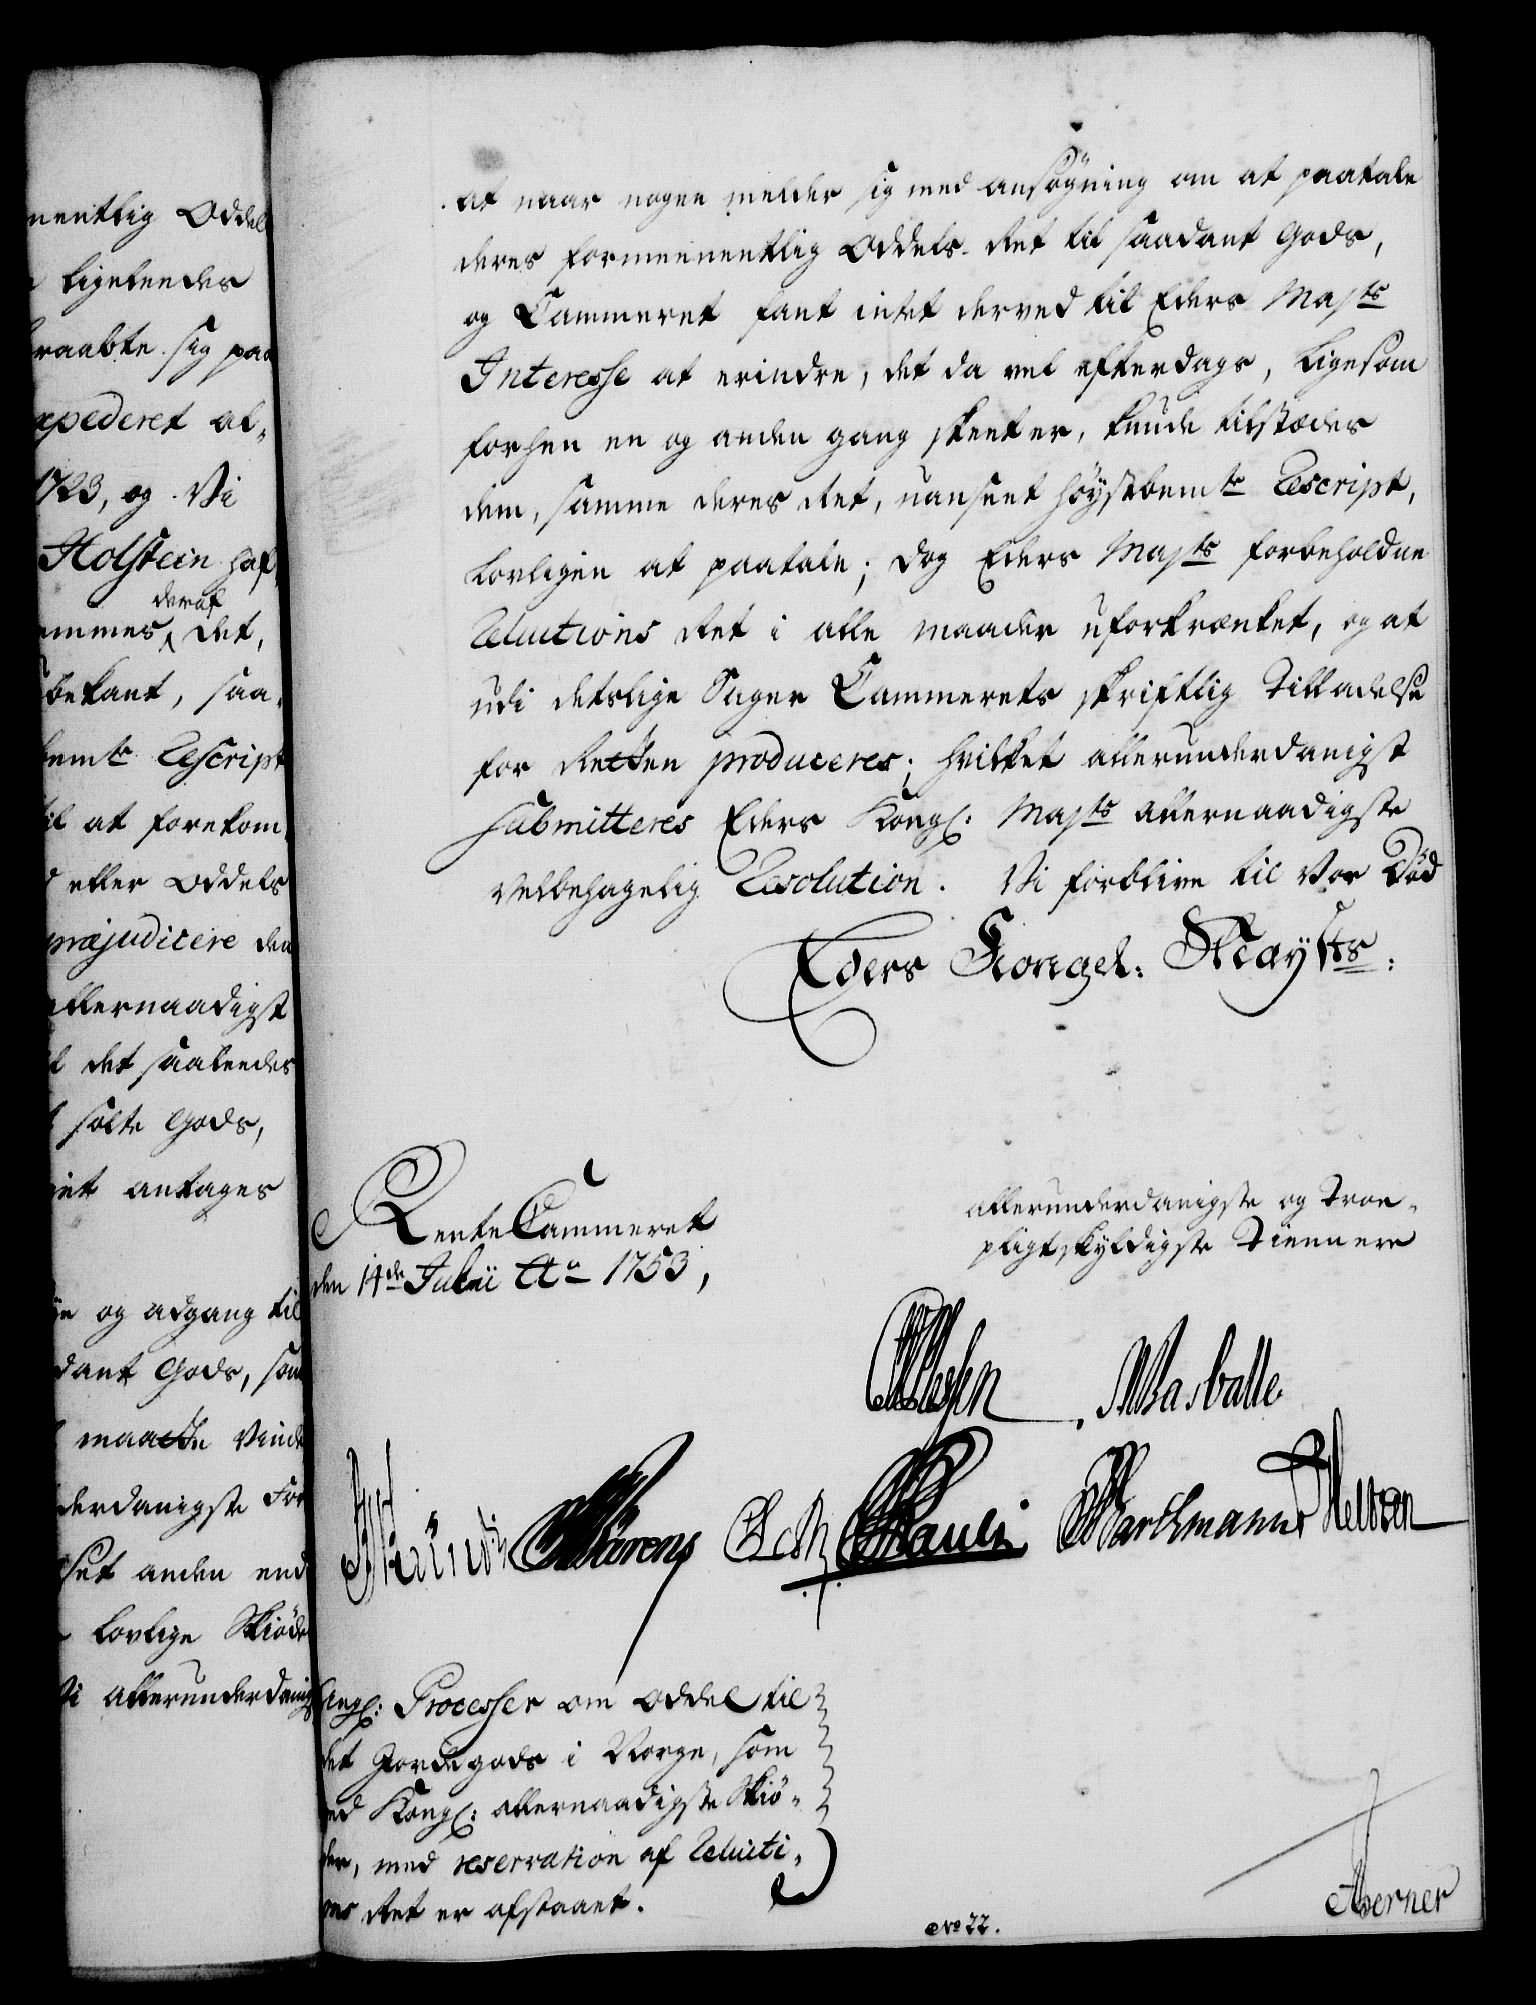 nentlig Oddel
ligeleedes
raabte sig paa
xpederet af,,
1723, og Vi
Holstein haf
deraf
emmes, Ret,
bekant, saa,,
bemte Rescript
til at forekom,,
eller Oddels
præjudicere den
allernaadigst
det saaleedes
solte Gods,
antages
og adgang til
dant Gods, som
maatte Vinde
derdanigste For
set anden end
lovlige Skiøde
Vi allerunderdanig
at naar nogen melder sig med ansøgning om at paatale
deres formeenentlig Oddels-Ret til saadant Gods,
og Cammeret fant intet derved til Eders Majts
Interesse at erindre, det da vel efterdags, ligesom
forhen en og anden gang skeet er, kunde tilstædes
dem, samme deres Ret, uanseet høystbemte Rescript,
lovligen at paatale; dog Eders Majts forbeholdne
Reluitions Ret i alle maader uforkrænket, og at
udi detslige Sager Cammerets skriftlig Tilladelse
for Retten produceres; hvilket allerunderdanigst
submitteres Eders Kongl: Majts allernaadigste
velbehagelig Resolution. Vi forblive til vor Død
Eders Kongel: Mayts:
Rente Cammeret
den 14de Julii Ao 1753,
allerunderdanigste og Troe,,
pligtskyldigste Tiennere
Holstein
det Jordegods i Norge, som
ved Kongl: allernaadigste Skiø,,
der, med reservation af Reluiti,,
ons Ret er afstaaet.
angl: Processer om Oddel til
No 22.